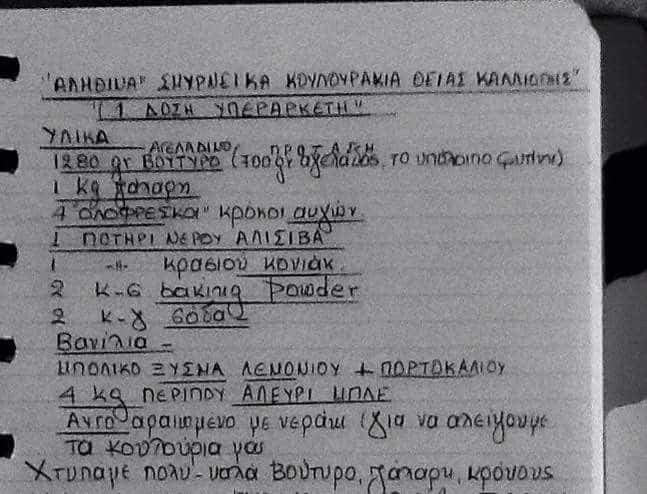 "ΑΛΗΘΙΝΑ" ΣΜΥΡΝΕΙΚΑ ΚΟΥΛΟΥΡΑΚΙΑ ΘΕΙΑΣ ΚΑΛΛΙΟΠΗΣ"
"(1 ΔΟΣΗ ΥΠΕΡΑΡΚΕΤΗ"
ΥΛΙΚΑ
ΑΓΕΛΑΔΙΝΟ ΠΡΟΤΑΣΗ
1280 gr ΒΟΥΤΥΡΟ (700 gr αγελάδος, το υπόλοιπο φυτίνη)
1 kg ζάχαρη
4 "ΟΛΟΦΡΕΣΚΟΙ" ΚΡΟΚΟΙ αυγών
1 ΠΟΤΗΡΙ ΝΕΡΟΥ ΑΛΙΣΙΒΑ
1 -//- κρασιού κονιάκ.
2 Κ-G baking Powder
2 Κ-γ σόδα
Βανίλια -
ΜΠΟΛΙΚΟ ΞΥΣΜΑ ΛΕΜΟΝΙΟΥ + ΠΟΡΤΟΚΑΛΙΟΥ
4 kg ΠΕΡΙΠΟΥ ΑΛΕΥΡΙ ΜΠΛΕ
Αυγο αραιωμένο με νεράκι (για να αλείψουμε
τα κουλούρια μας
Χτυπάμε πολυ-καλά βούτυρο, ζάχαρη, κρόκους